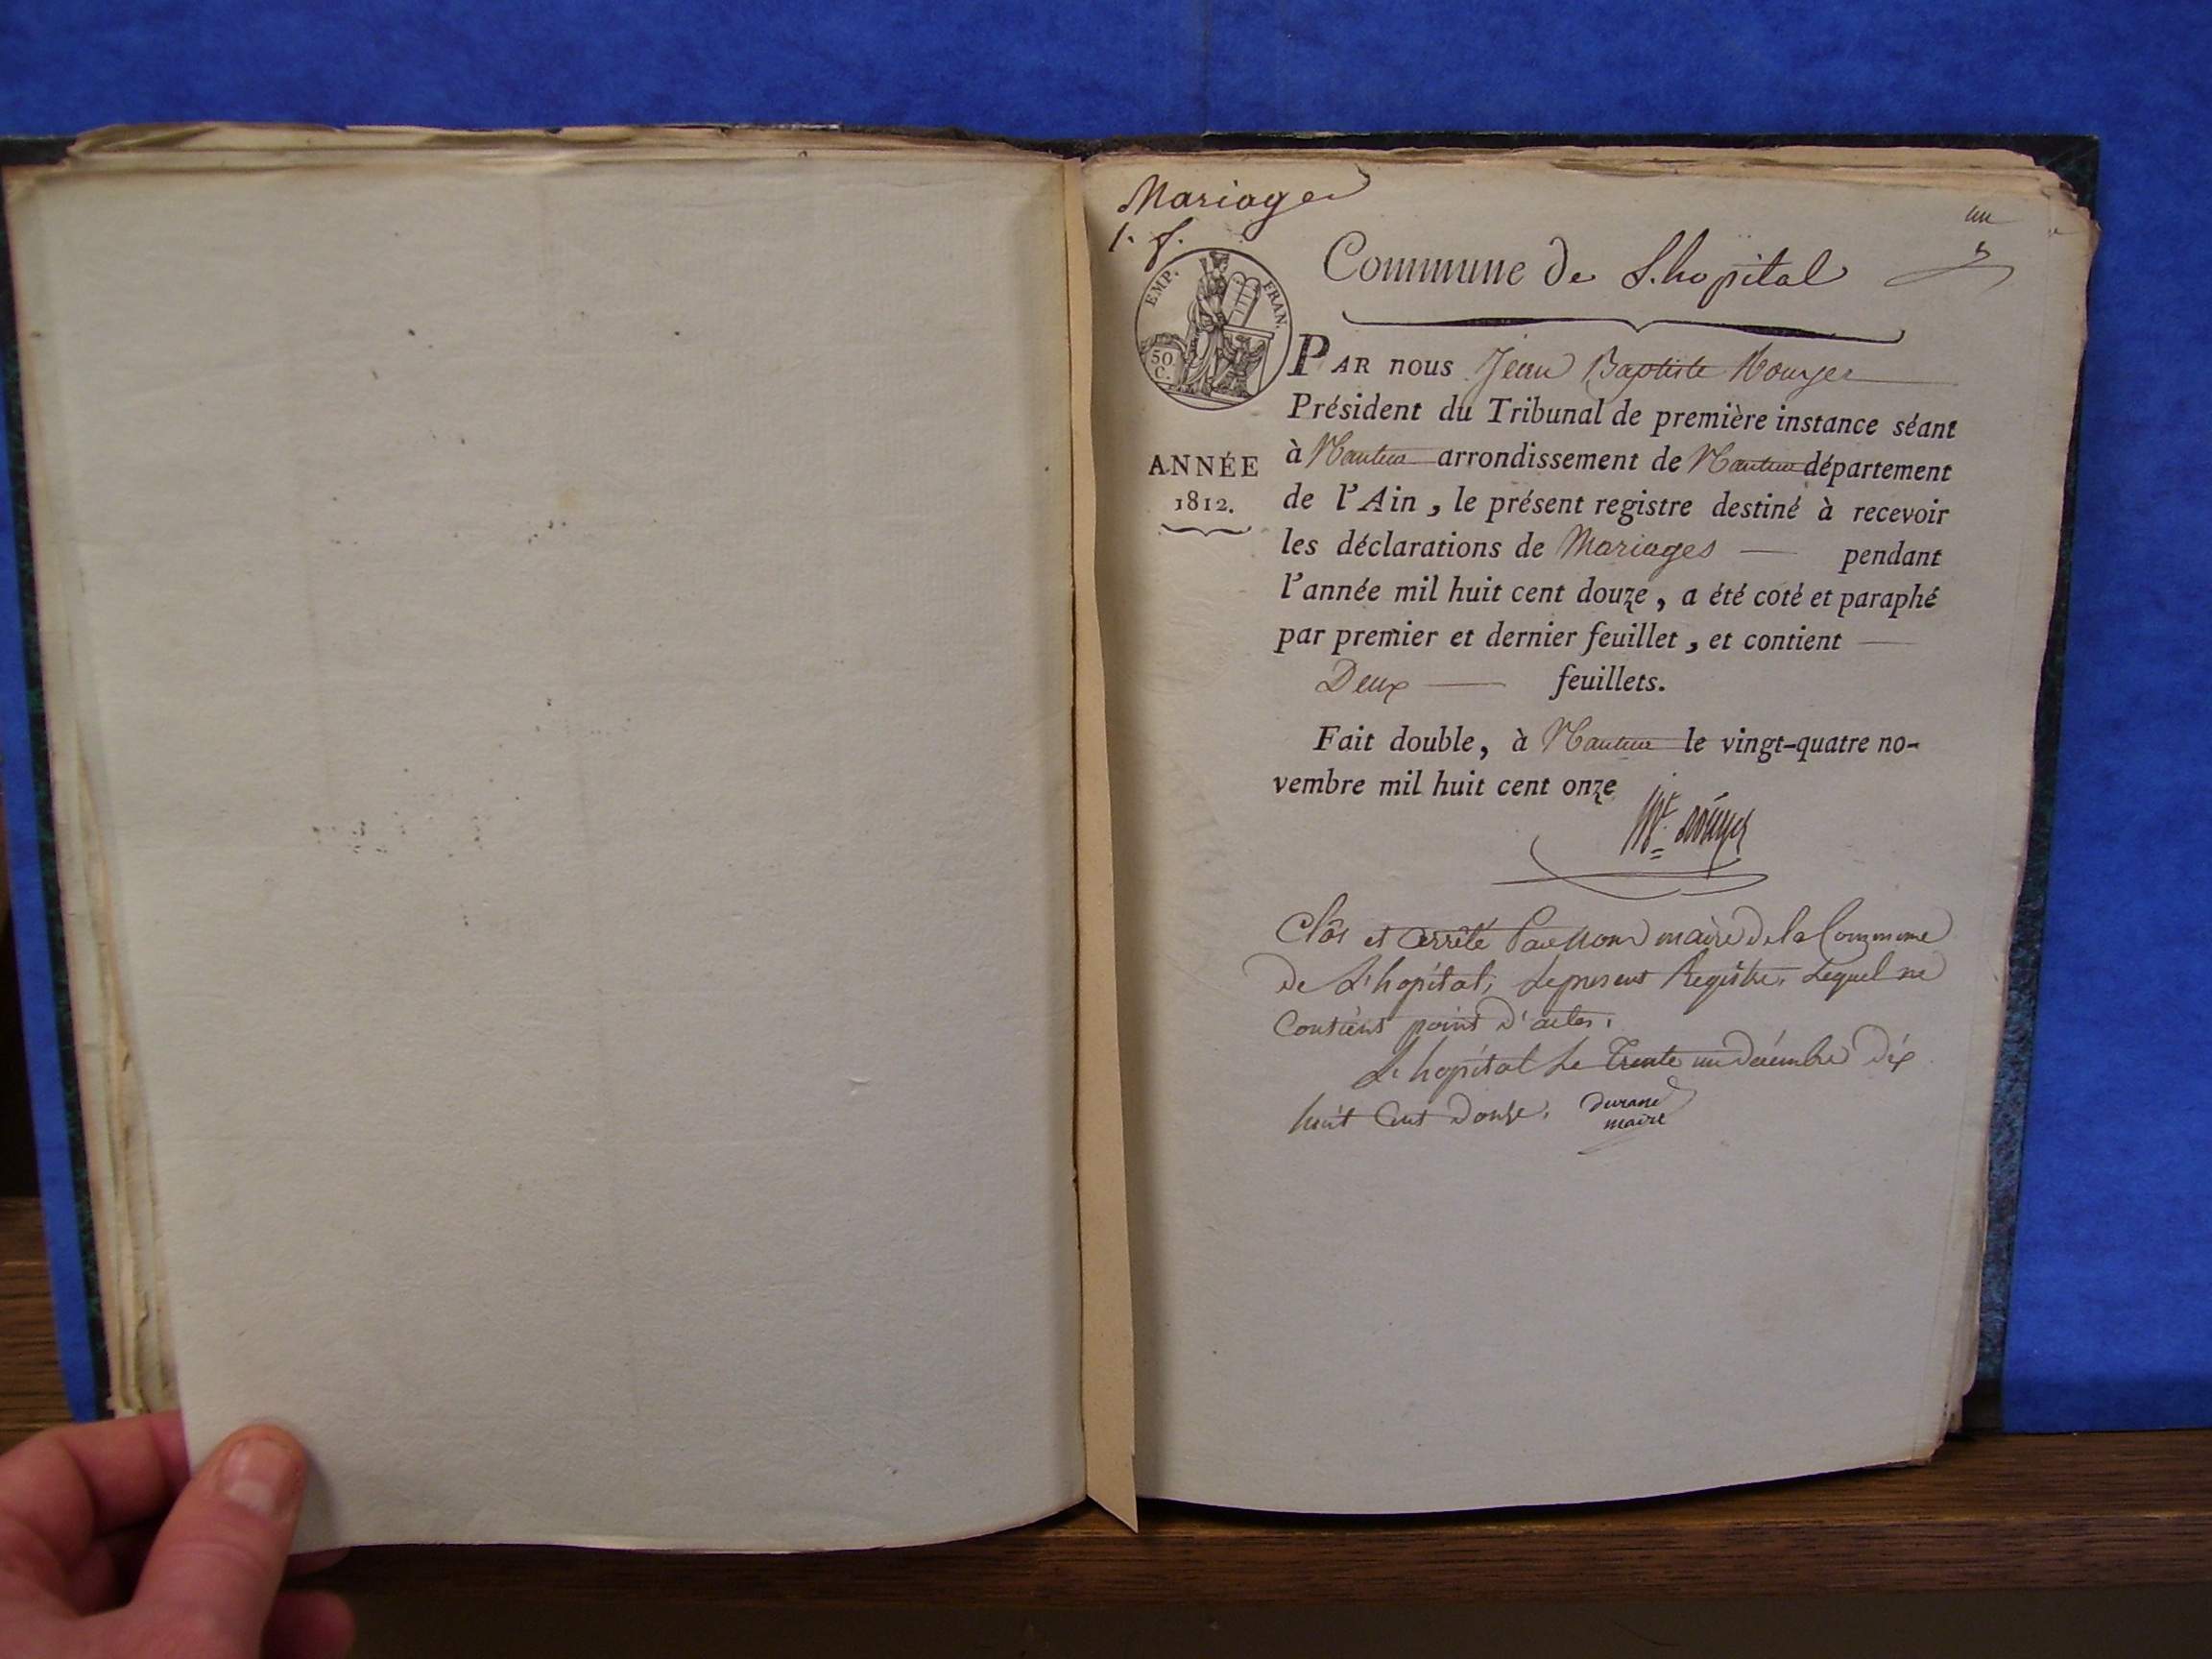 Mariages
1. f.
un
Commune de L'hopital
EMP. FRAN.
50 C.
PAR nous Jean Baptiste
Président du Tribunal de première instance séant
à Nantua arrondissement de Nantua département
ANNÉE
1812.
de l'Ain, le présent registre destiné à recevoir
les déclarations de Mariages — pendant
l'année mil huit cent douze, a été coté et paraphé
par premier et dernier feuillet, et contient —
Deux — feuillets.
Fait double, à Nantua le vingt-quatre no-
vembre mil huit cent onze
Clôs et arrêté Par Nous maire de la Commune
de L'hopital, Le present Registre, Lequel ne
Contient point d'actes.
L'hopital Le Trente un décembre dix
huit Cent Douze. durand
maire